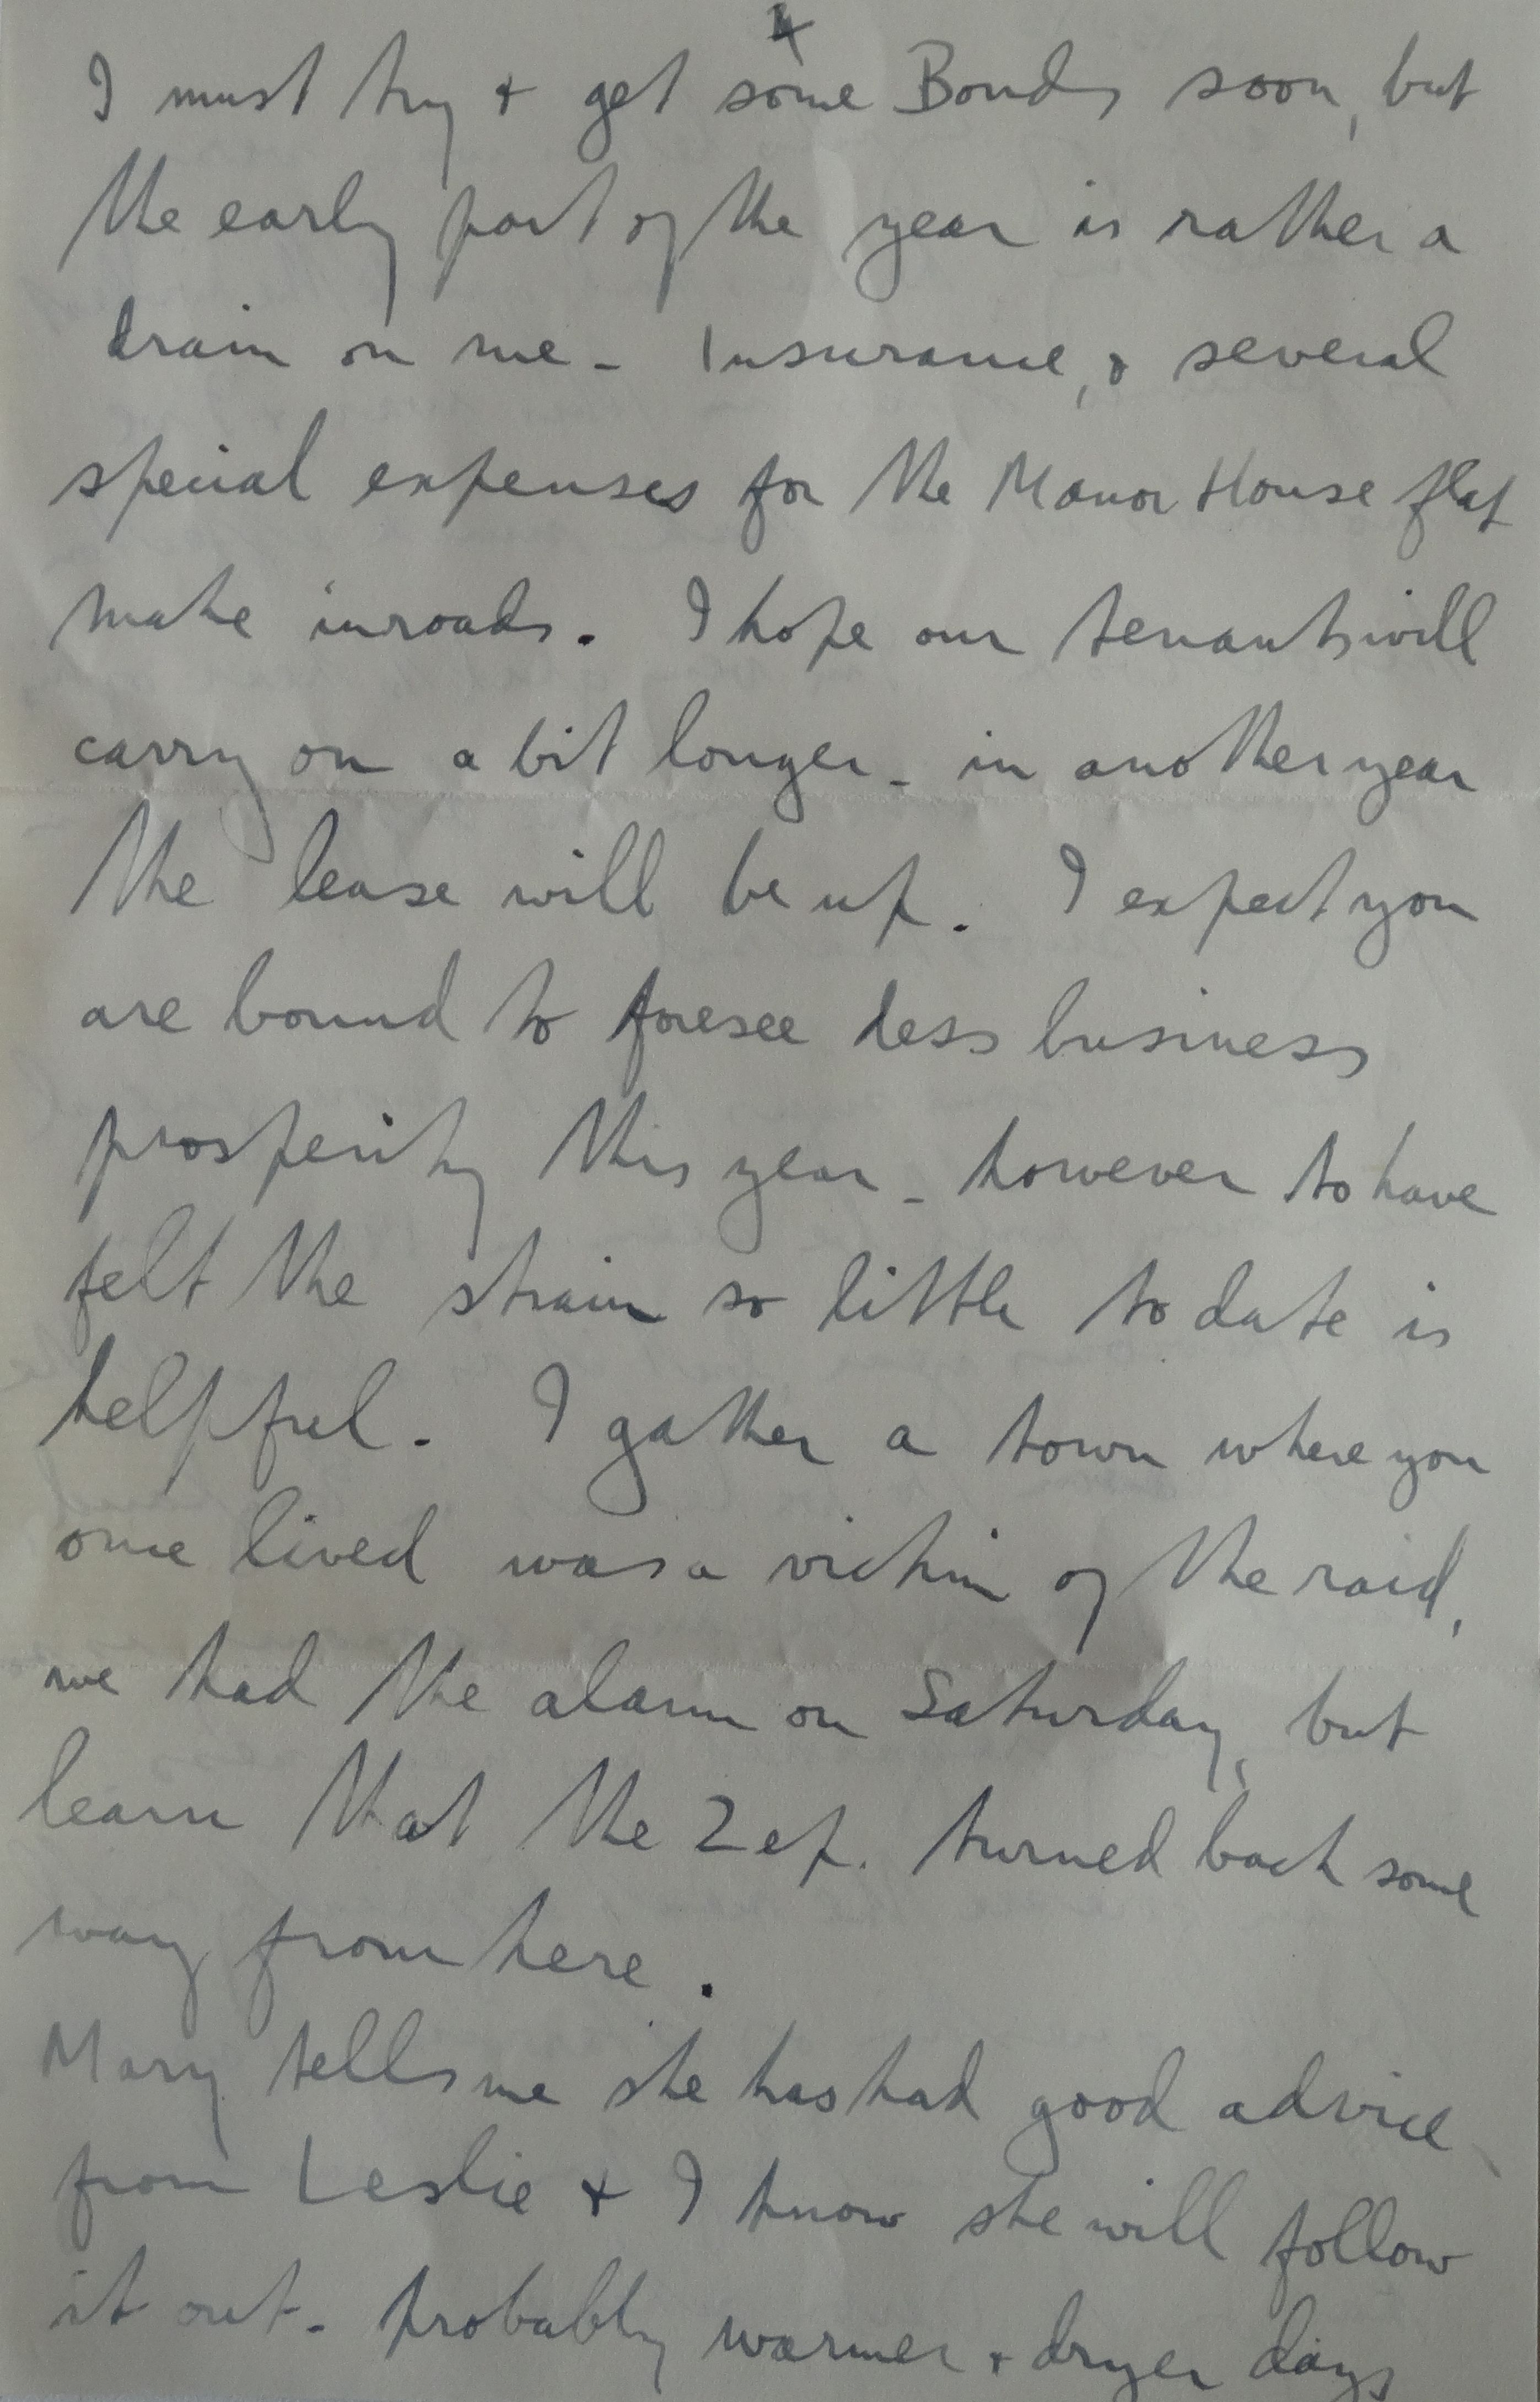 4
I must try + get some Bonds soon, but
the early part of the year is rather a
drain on me - Insurance, & several
special expenses for the Manor House flat
make inroads. I hope our tenants will
carry on a bit longer - in another year
the lease will be up. I expect you
are bound to foresee less business
prosperity this year - however to have
felt the strain so little to date is
helpful. I gather a town where you
once lived was a victim of the raid,
we had the alarm on Saturday, but
learn that the Zep. turned back some
way from here.
Mary tells me she has had good advice
from Leslie + I know she will follow
it out - probably warmer + dryer days